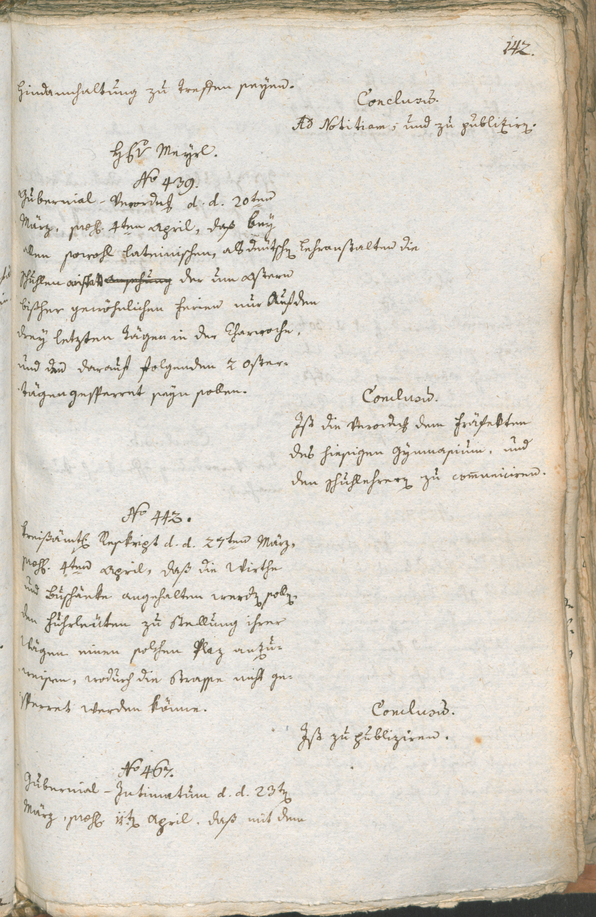 142.
hindannhaltung zu treffen seyen.
Conclusum.
Ad Notitiam; und zu publiziren.
Hr Meyrl.
No 439.
Gubernial-Verordnung d. d. 20ten
März, 4ten April, daß bey
allen sowohl lateinischen, als deutschen Lehranstalten die
Schulen anstatt der um Ostern
bisher gewöhnlichen Ferien nur Auf den
drey letzten Tägen in der Charwoche,
und den darauf folgenden 2 Oster-
tägen gesperret seyn sollen.
Conclusum.
Ist die Verordnung dem Präfekten
des hiesigen Gymnasium, und
den Schullehrern zu communiciren.
No 442.
Kreißämtl. Reskript d. d. 27ten März,
4ten April, daß die Wirthe
und angehalten werden sollen
den Fuhrleüten zu Stellung ihrer
Wägen einen solchen Plaz anzu-
weisen, wodurch die Strasse nicht ge-
sperret werden könne.
Conclusum.
Ist zu publiziren.
No 467.
Gubernial-Intimatum d. d. 23ten
März, 11ten April. daß mit dem